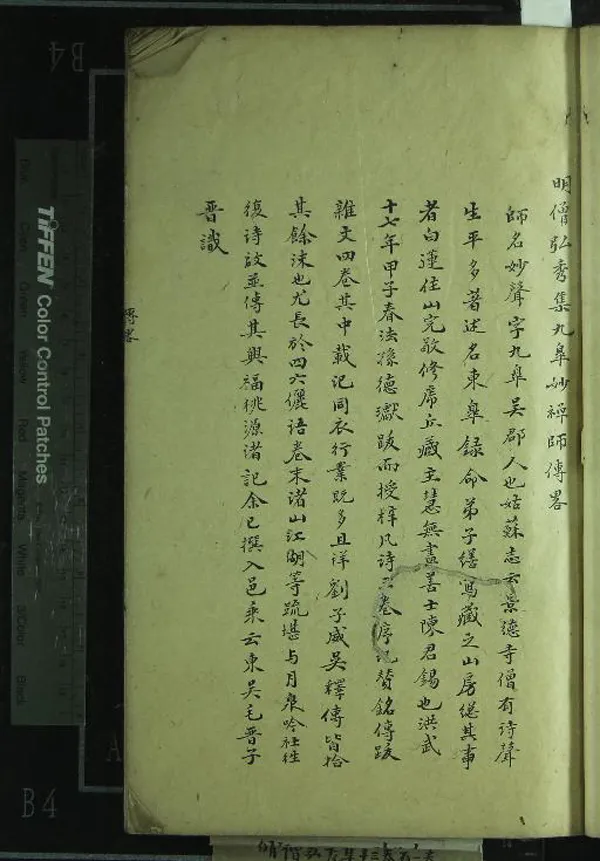 明僧弘秀集九皋妙禪師傳畧
師名妙聲字九皋吳郡人也姑蘇志云景德寺僧有詩聲
生平多著述名東皋錄命弟子繕寫藏之山房總其事
者白蓮住山完敬修虎丘藏主慧無盡善士陳君錫也洪武
十七年甲子春法孫德瓛跋而授梓凡詩三卷序記贊銘傳跋
雜文四卷其中載記同衣行業既多且詳劉子威吳釋傳皆拾
其餘沫也尤長於四六儷語卷末渚山江湖等疏堪与月泉吟社往
復詩啟並傳其興福桃源渚記余已撰入邑乘云東吳毛晉子
晉識
傳畧
TIFFEN Color Control Patches
Blue
Green
Yellow
Red
Magenta
White
3/Color
Black
B4
B4